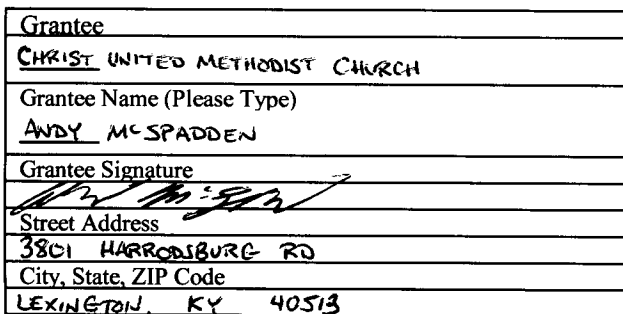 Grantee
CHRIST UNITED METHODIST CHURCH
Grantee Name (Please Type)
ANDY MCSPADDEN
Grantee Signature
Street Address
3801 HARRODSBURG RD
City, State, ZIP Code
LEXINGTON, KY 40513